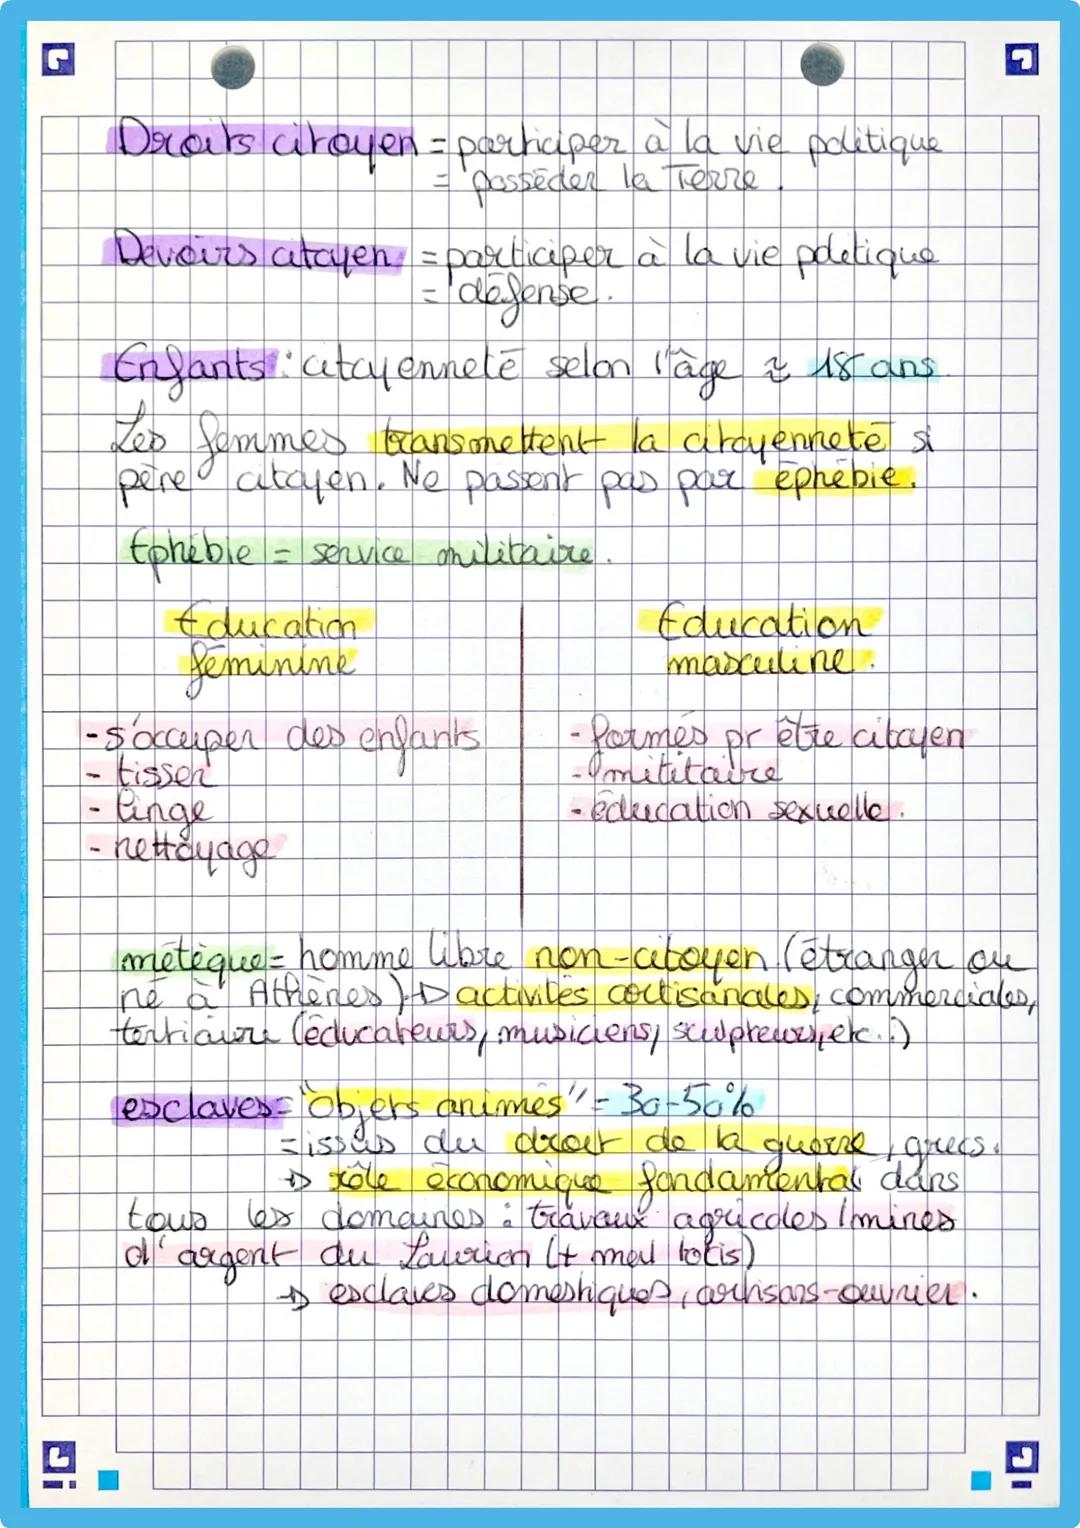 Droits citoyen = participer à la vie politique
= posséder la Terre.
Devoirs citoyen = participer à la vie politique
= défense.
Enfants : citoyenneté selon l'âge ≈ 18 ans
Les femmes transmettent la citoyenneté si
père citoyen. Ne passent pas par éphébie.
Ephébie = service militaire.
Education
féminine
- s'occuper des enfants
- tisser
- linge
- nettoyage
Education
masculine.
- formés pr être citoyen
- militaire
- éducation sexuelle.
métèque = homme libre non-citoyen (étranger ou
né à Athènes) → activités artisanales, commerciales,
tertiaire (éducateurs, musiciens, sculpteurs, etc..)
esclaves = "objets animés" = 30-50%
= issus du droit de la guerre, grecs.
→ rôle économique fondamental dans
tous les domaines : travaux agricoles / mines
d'argent du Laurion (+ mal lotis)
→ esclaves domestiques, artisans-ouvrier.